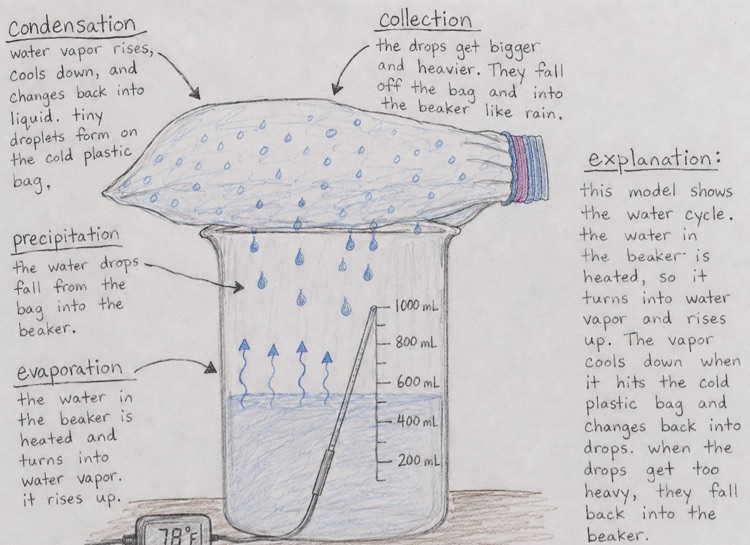 condensation
water vapor rises,
cools down, and
changes back into
liquid. tiny
droplets form on
the cold plastic
bag,
collection
the drops get bigger
and heavier. They fall
off the bag and into
the beaker like rain.
precipitation
the water drops
fall from the
bag into the
beaker.
evaporation
the water in
the beaker is
heated and
turns into
water vapor.
it rises up.
1000 mL
800 mL
600 mL
400 mL
200 mL
78°F
explanation:
this model shows
the water cycle.
the water in
the beaker is
heated, so it
turns into water
vapor and rises
up. The vapor
cools down when
it hits the cold
plastic bag and
changes back into
drops. when the
drops get too
heavy, they fall
back into the
beaker.